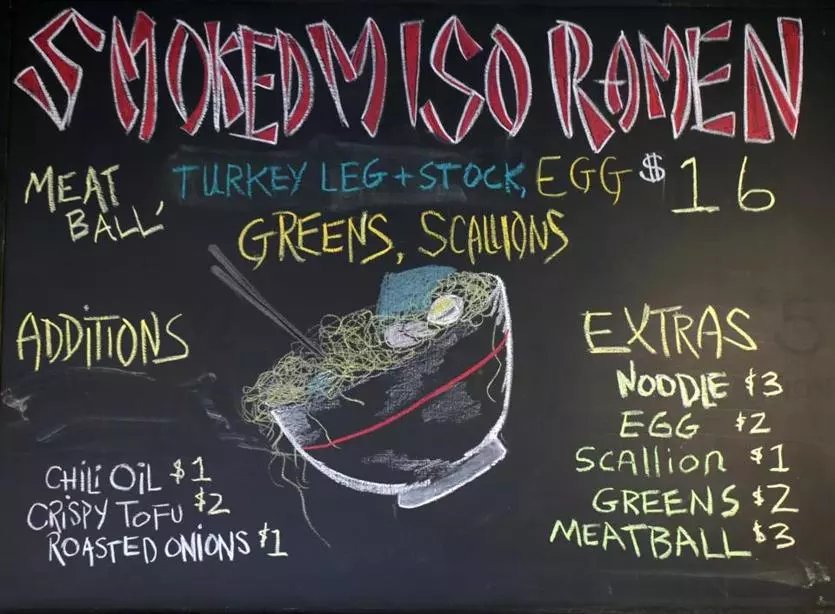 SMOKED MISO RAMEN
MEAT BALL, TURKEY LEG + STOCK, EGG $16
GREENS, SCALLIONS
ADDITIONS
CHILI OIL $1
CRISPY TOFU $2
ROASTED ONIONS $1
EXTRAS
NOODLE $3
EGG $2
SCALLION $1
GREENS $2
MEATBALL $3